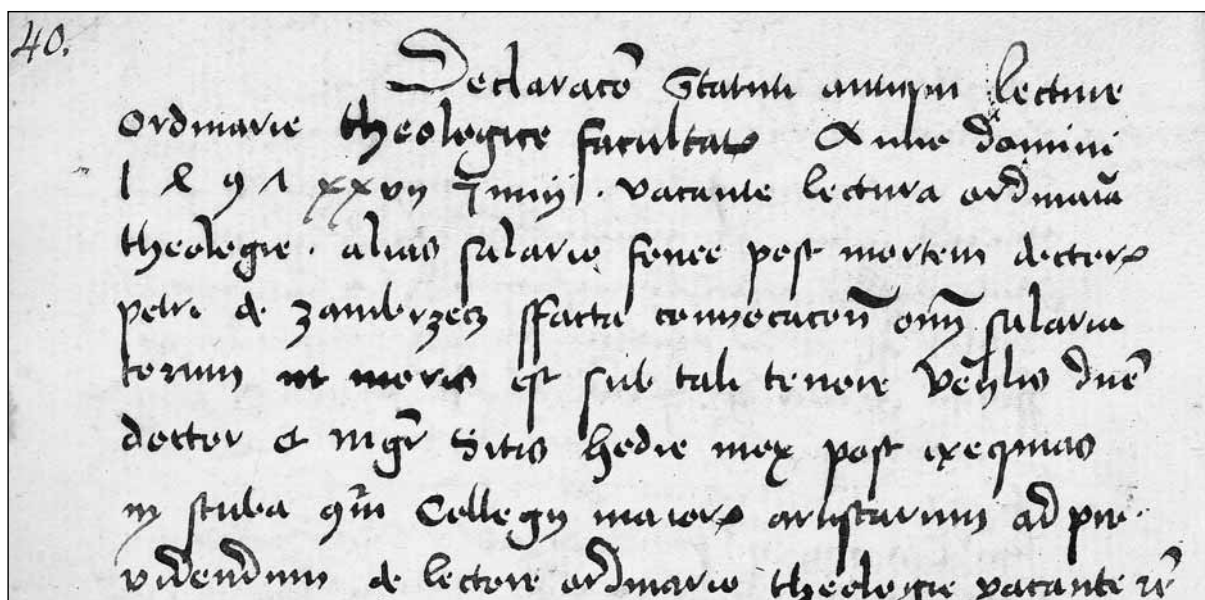 40.
Declaracōe Statuti antiqui lecture
Ordinarie theologice facultatis Anno domini
1 8 9 1 xxvij Junij . vacante lectura ordinaria
theologie . alias salario fenee post mortem doctoris
petri de zambrzecz ffacta convocacōn om̄ salaria
torum ut moris est sub tali tenore Ven̄lis dn̄e
doctor et mgr̄ Sitis hodie mox post exequias
in stuba cōi Collegij maioris artistarum ad pro
videndum de lectore ordinario theologie vacante